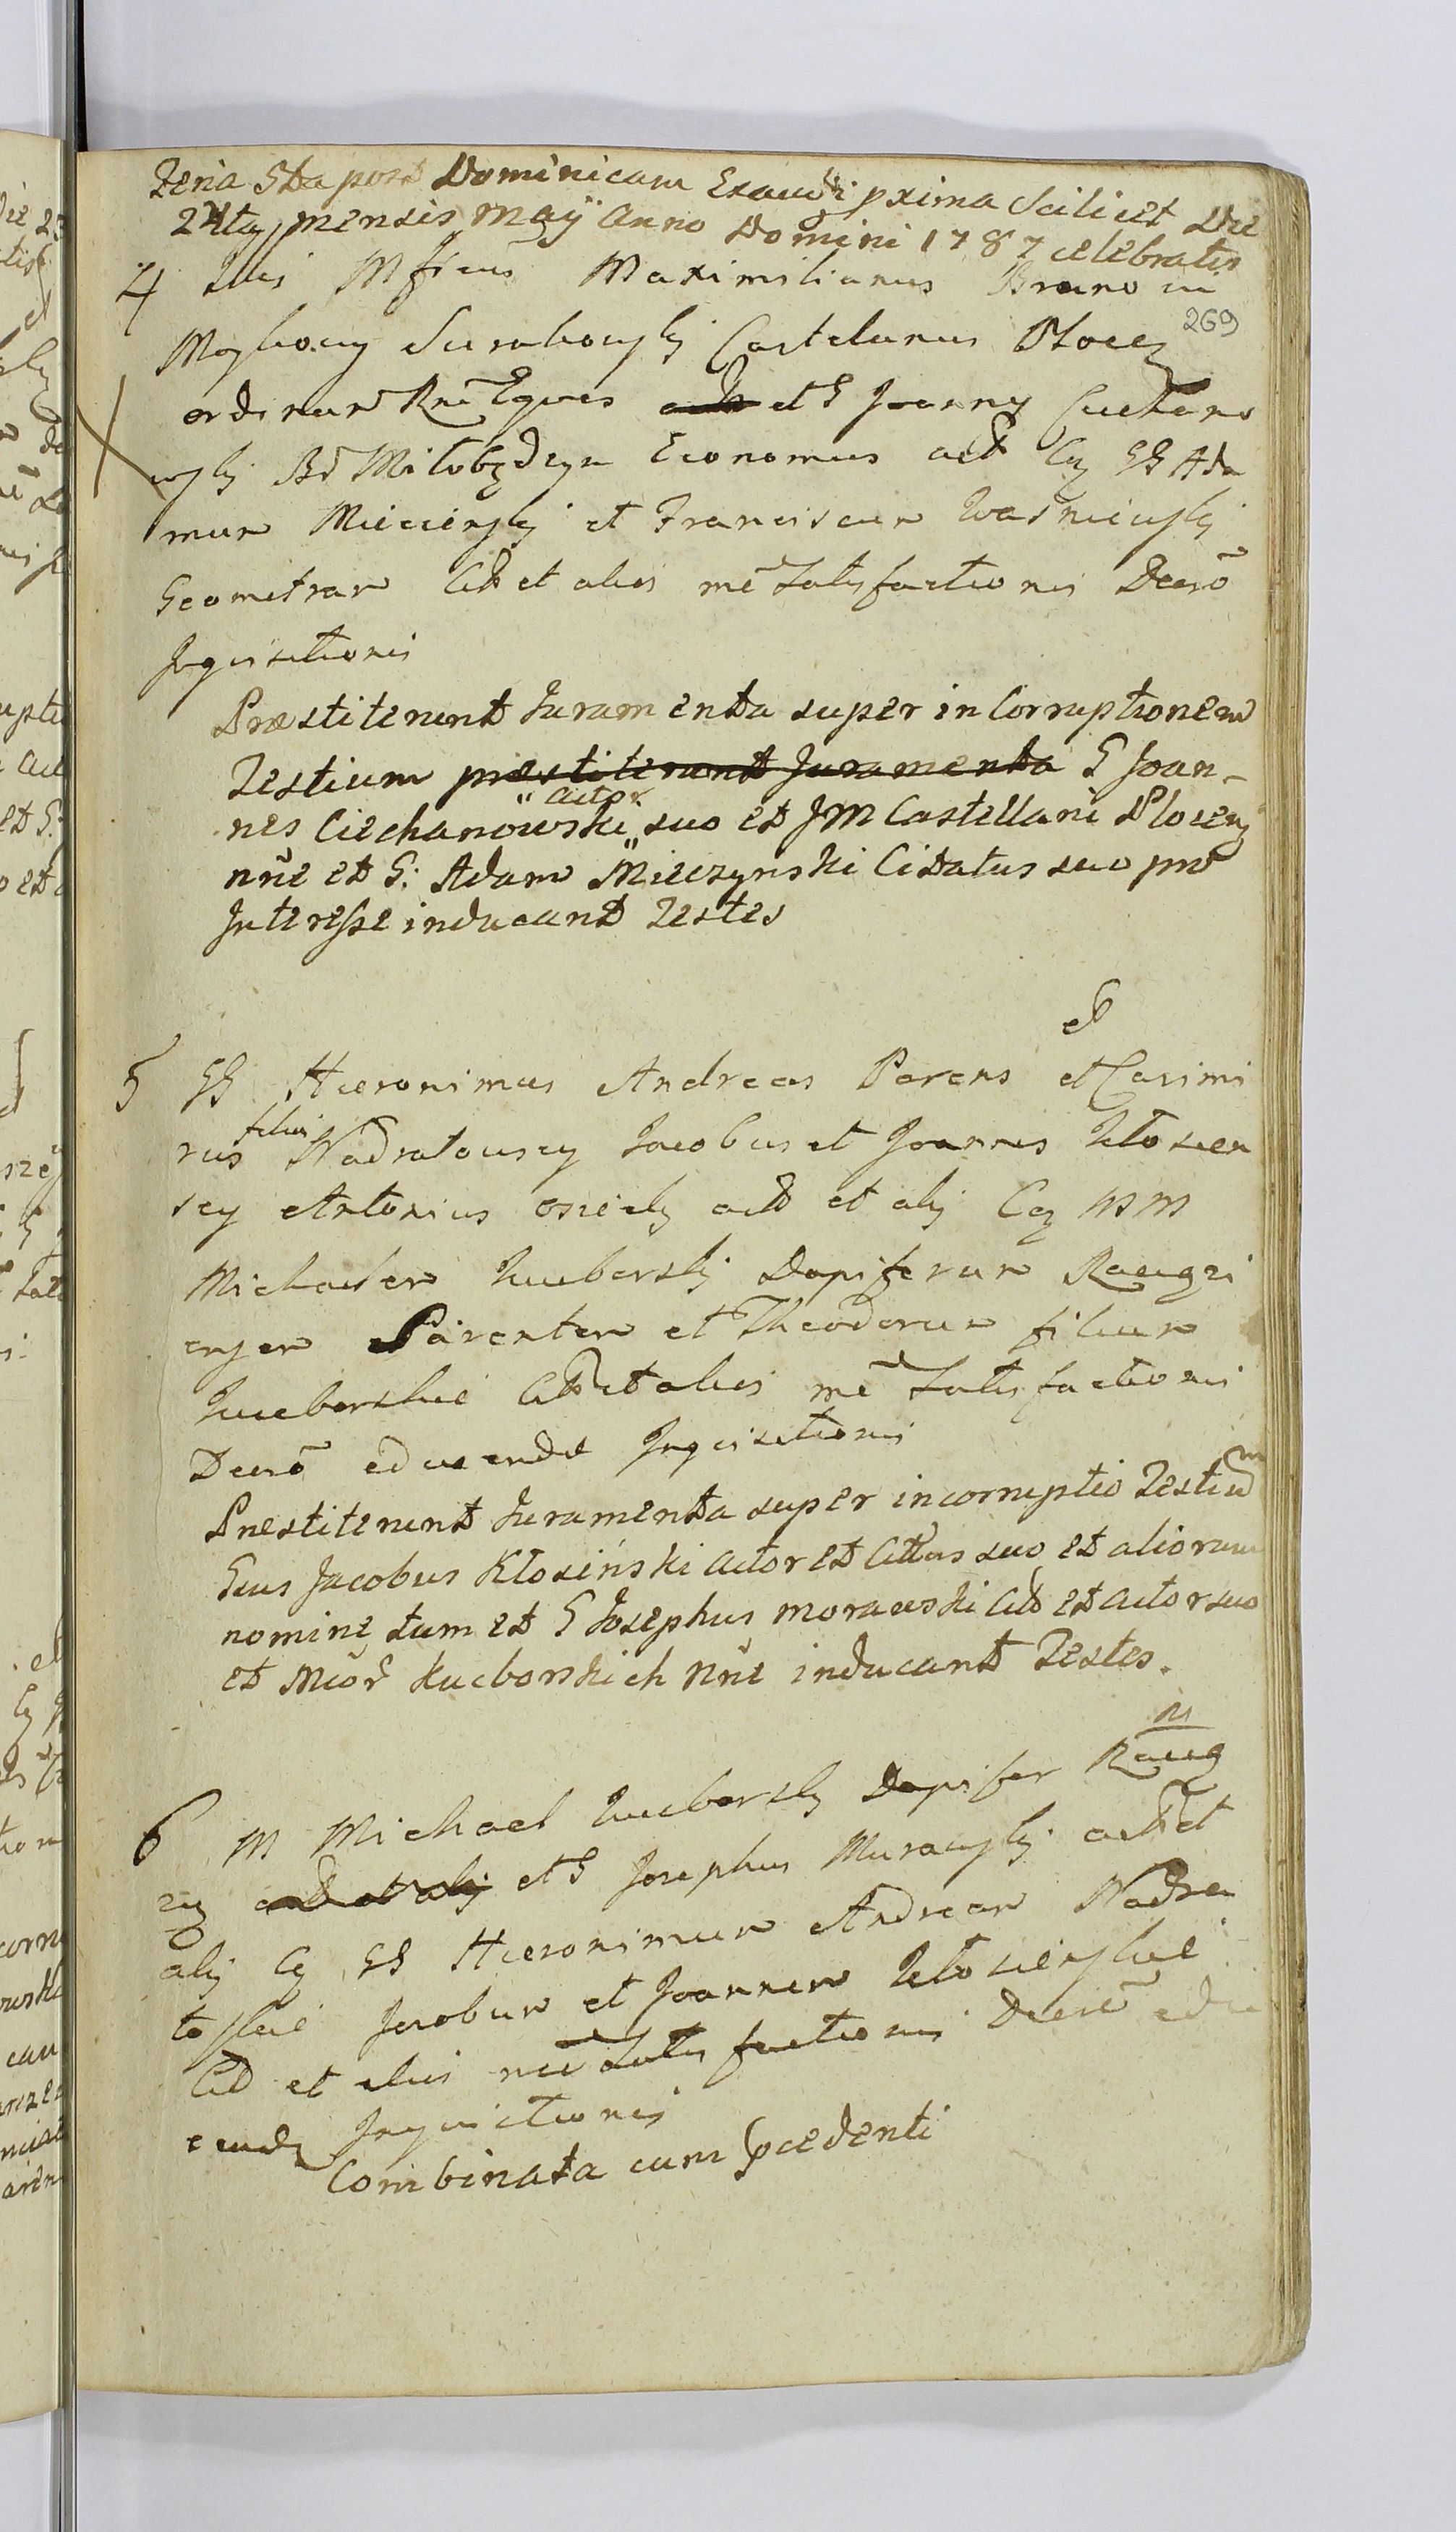 Feria 5ta post Dominicam Exaudi pxima Scilicet Die
24ta mensis Maÿ Anno Domini 1787 celebratis
4 Illris Mficus Maximilianus Bruno in
269
Sierakowskj Castelanus Płocen
ordinum Rni Eques et G Joannes Ciechano
wskj Bd Miłobędzyn Economus act Cq GG Ada
mum Mieciĕskj et Franciscum Wasniewskj
Geometram Citt et alios mē Satisfactionis Decrō
Inquisitionis
Præstiterunt Juramenta super in Corruptionem
Testium præstiterunt Juramenta G Joan-
nes Ciechanowski „actor„ suo et JM Castellani Plocen
nñe et G: Adam Mieczynski Citatus suo pro
Interesse inducunt Testes
et
5 GG Hieronimus Andreas Parens et Casimi
rus filius Nadratowscy Jacobus et Joannes Kłosien
scy Antonius act et alij Cq MM
Michaelem Kucborskj Dapiferum Raciązi
ensem Parentem et Theodorum filium
Kucborskie Citt et alios mē Satisfactionis
Decrō educendæ Inquisitionis
Præstiterunt Juramenta super incorruptio Testium
Gsus Jacobus Kłosiński actor et Cittus suo et aliorum
nomine tum et G Josephus Morawski Citt et actor suo
et Mcōr Kucborskich nñe inducunt Testes.
6 M Michael Kucborskj Dapifer Raciąz
ns
et alij et G Josephus Murawskj act et
alij Cq GG Hieronimum Andream Nadra
toskie Jacobum et Joannem Kłosieńskie
Citt et alios mē Satisfactionis Decrē edu
cendæ Inquisitionis
Combinata cum pcedenti